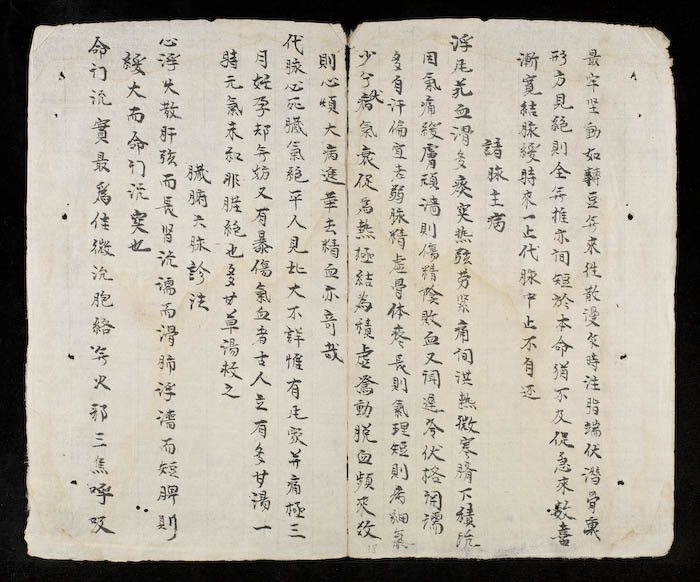 最牢坚動如轉豆無來往散漫欠時注脂端伏潛骨裏
形方見絕則全無推亦间短於本命猶不及促急來數喜
漸寬結脉緩時來一止代脉中止不自还
諸脉主病
浮风芤血滑多痰实热弦劳紧痛间洪热微寒脐下積沉
因氣痛緩膚頑濇則傷精陰敗血又闻遲冷伏格闭濡
多自汗偏宜老弱脉精虛骨体疼長則氣理短則病細氣
少兮伏病氣衰促為热極結為積虛驚動脱血頻來数
則心煩大病進革去精血亦奇哉
代脉心死臓氣絕平人見此大不詳惟有风家并痛極三
月妊孕却無妨又有暴傷氣血者古人立有多甘湯一
時元氣未和非臓絕也多甘草湯救之
臓腑六脉診法
心浮大散肝弦而長肾沉濡而滑肺浮濇而短脾則
緩大而命门沉実也
命门沉實最為佳微沉胞絡無火邪三焦呼吸